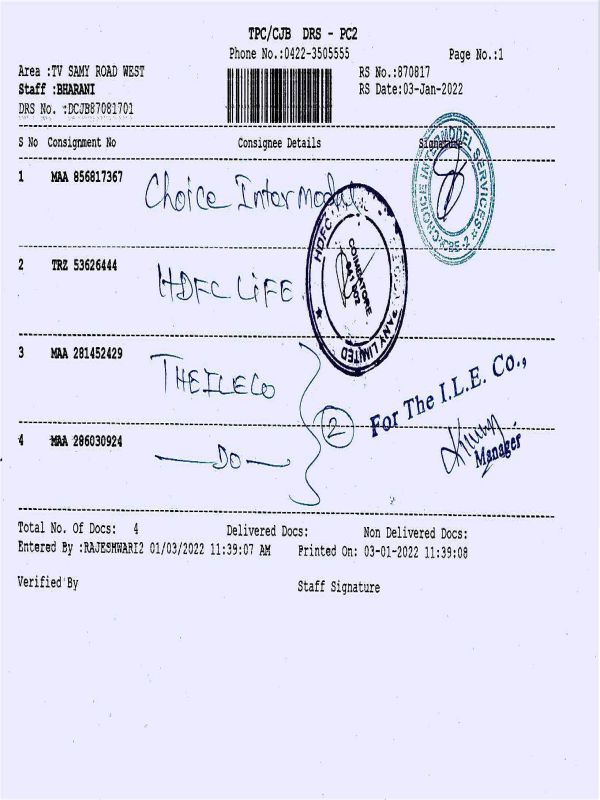 TPC/CJB DRS - PC2
Phone No.:0422-3505555
Page No.:1
Area :TV SAMY ROAD WEST
RS No.:870817
Staff :BHARANI
RS Date:03-Jan-2022
DRS No. :DCJB87081701
S No Consignment No Consignee Details Signature
CHOICE INTERMODEL SERVICES
CBE-2
1 MAA 856817367 Choice Intermodal
2 TRZ 53626444 HDFC LIFE
HDFC
COIMBATORE
641 002
ANY LIMITED
3 MAA 281452429 THEILECO
2
For The I.L.E. Co.,
4 MAA 286030924 - DO -
Manager
Total No. Of Docs: 4 Delivered Docs: Non Delivered Docs:
Entered By :RAJESHWARI2 01/03/2022 11:39:07 AM Printed On: 03-01-2022 11:39:08
Verified By Staff Signature